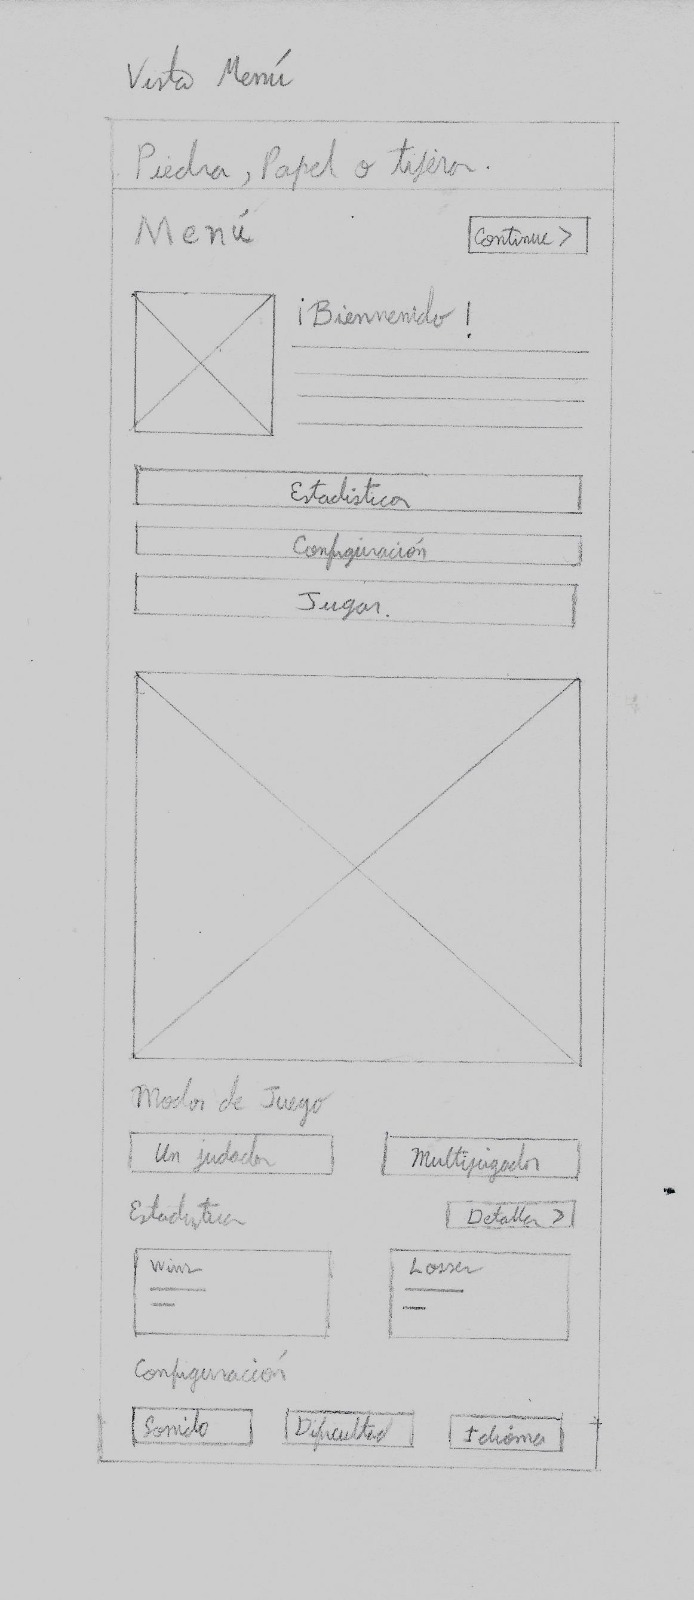 Vista Menú
Piedra, Papel o tijera.
Menú
Continue >
¡Bienvenido!
Estadistica
Configuración
Jugar.
Modos de Juego
Un judador
Multijugador
Estadistica
Detalles >
Wins
Losser
Configuración
Sonido
Dificultad
Idioma